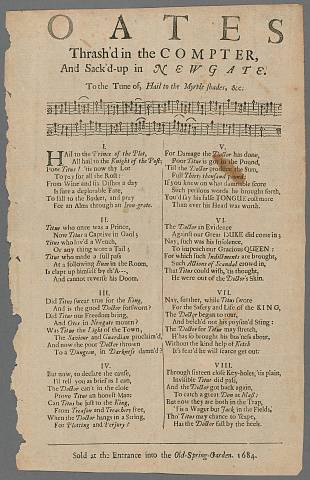 OATES
Thrash'd in the COMPTER,
And Sack'd-up in NEWGATE.
To the Tune of, Hail to the Myrtle shades, &c:
I.
Hail to the Prince of the Plot,
All hail to the Knight of the Post;
Poor Titus! 'tis now thy Lot
To pay for all the Rost:
From Wine and six Dishes a day
Is sure a deplorable Fate,
To fall to the Basket, and pray
For an Alms through an Iron-grate.
II.
Titus who once was a Prince,
Now Titus a Captive in Gaol;
Titus who liv'd a Wench,
Or any thing wore a Tail;
Titus who made a full pass
At a following Bum in the Room,
Is clapt up himself by th' A--,
And cannot reverse his Doom.
III.
Did Titus swear true for the King,
And is the good Doctor forsworn?
Did Titus our Freedom bring,
And Otes in Newgate mourn?
Was Titus the Light of the Town,
The Saviour and Guardian proclaim'd,
And now the poor Doctor thrown
To a Dungeon, in Darkness damn'd?
IV.
But now, to declare the cause,
I'll tell you as brief as I can,
The Doctor can't in the close
Prove Titus an honest Man:
Can Titus be just to the King,
From Treason and Treachery free,
When the Doctor hangs in a String,
For Plotting and Perjury?
V.
For Damage the Doctor has done,
Poor Titus is got in the Pound,
Till the Doctor produce the Sum,
Full Thirty thousand pound;
If you knew on what damnable score
Such perjious words he brought forth,
You'd say his false TONGUE cost more
Than ever his Head was worth.
VI.
The Doctor in Evidence
Against our Great DUKE did come in;
Nay, such was his Insolence,
To impeach our Gracious QUEEN:
For which such Indictments are brought,
Such Actions of Scandal crowd in,
That Titus could wish, 'tis thought,
He were out of the Doctor's Skin.
VII.
Nay, farther, while Titus swore
For the Safety and Life of the KING,
The Doctor began to roar,
And belch'd out his poyson'd Sting:
The Doctor for Titus may stretch,
H'has so brought his bus'ness about,
Without the kind help of Ketch
It's fear'd he will scarce get out:
VIII.
Through sixteen close Key-holes, 'tis plain,
Invisible Titus did pass,
And the Doctor got back again,
To catch a great Don at Mass:
But now they are both in the Trap,
'Tis a Wager but Jack in the Fields,
Tho Titus may chance to 'scape,
Has the Doctor fast by the heels.
Sold at the Entrance into the Old-Spring-Garden. 1684.